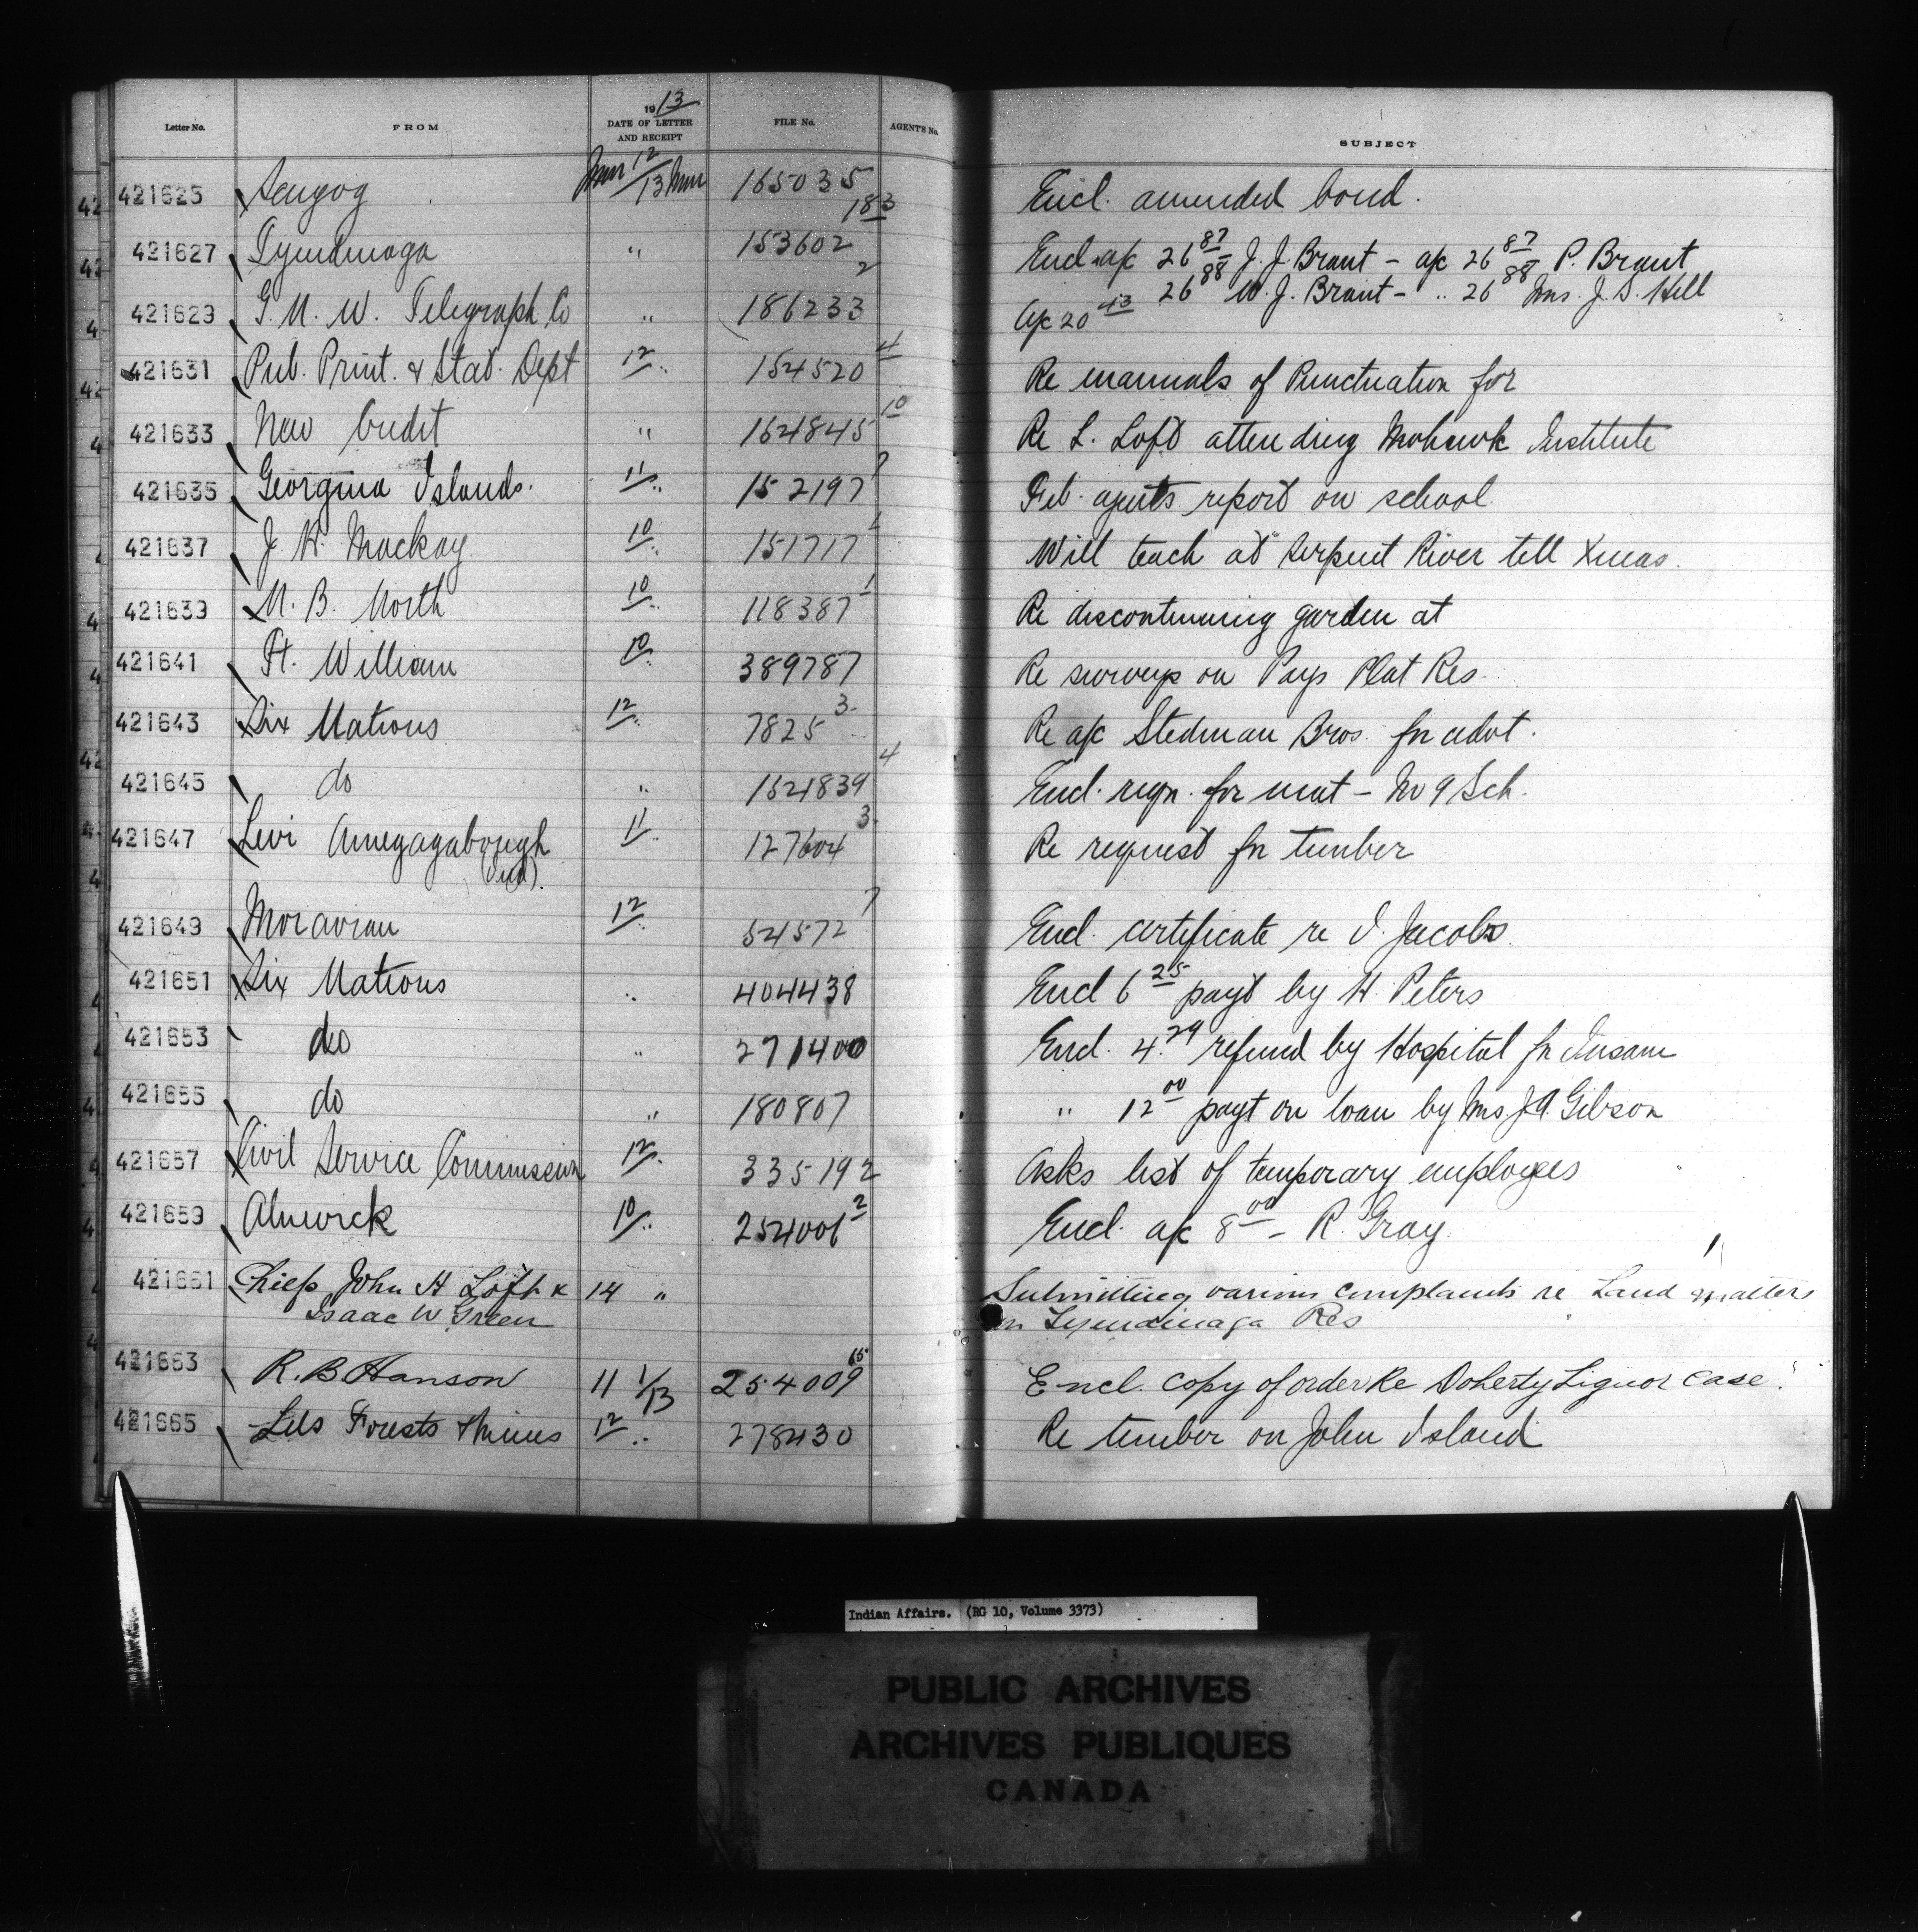 1913
Letter No. FROM DATE OF LETTER AND RECEIPT FILE No. AGENT'S No. SUBJECT
421625 Scugog Jun 12/13 Jun 165035 Encl. amended bond.
421627 Tyendinaga " 153602 183 Encl. a/c 26 87 J. J. Brant – a/c 26 87 P. Brant
26 88 W. J. Brant – " 26 88 Mrs. J. S. Hill
421629 G. N. W. Telegraph Co " 186233 2 a/c 20 43
421631 Pub. Print. & Stat. Dept 12 " 154520 4 Re manuals of Punctuation for
421633 New Credit " 154845 10 Re L. Loft attending Mohawk Institute
421635 Georgina Islands. 11 " 152197 Feb. agents report on school
421637 J. W. Mackay 10 " 151717 Will teach at Serpent River till Xmas.
421639 N. B. North 10 " 118387 1 Re discontinuing garden at
421641 Ft. William 10 " 389787 Re surveys on Pays Plat Res.
421643 Six Nations 12 " 7825 3 Re a/c Stedman Bros. for advt.
421645 do " 1521839 4 Encl. reqn. for mat – No 9 Sch.
421647 Levi Amegagabough (Ind). 11 " 127604 3 Re request for timber
421649 Moravian 12 " 54572 7 Encl. certificate re J. Jacobs
421651 Six Nations " 404438 Encl 6 25 payt by H. Peters
421653 do " 271400 Encl. 4.29 refund by Hospital for Insane
421655 do " 180807 " 12 00 payt on loan by Mrs J A Gibson
421657 Civil Service Commission 12 " 335192 Asks list of temporary employees
421659 Alnwick 10 " 254006 2 Encl. a/c 8 00 – R. Gray
421661 Chiefs John H Loft & 14 " Submitting various complaints re Land matters
Isaac W Green on Tyendinaga Res
421663 R. B Hanson 11 1/13 254009 65 Encl. copy of order Re Doherty Liquor case.
421665 Lds Forests & Mines 12 " 278430 Re timber on John Island
Indian Affairs. (RG 10, Volume 3373)
PUBLIC ARCHIVES
ARCHIVES PUBLIQUES
CANADA